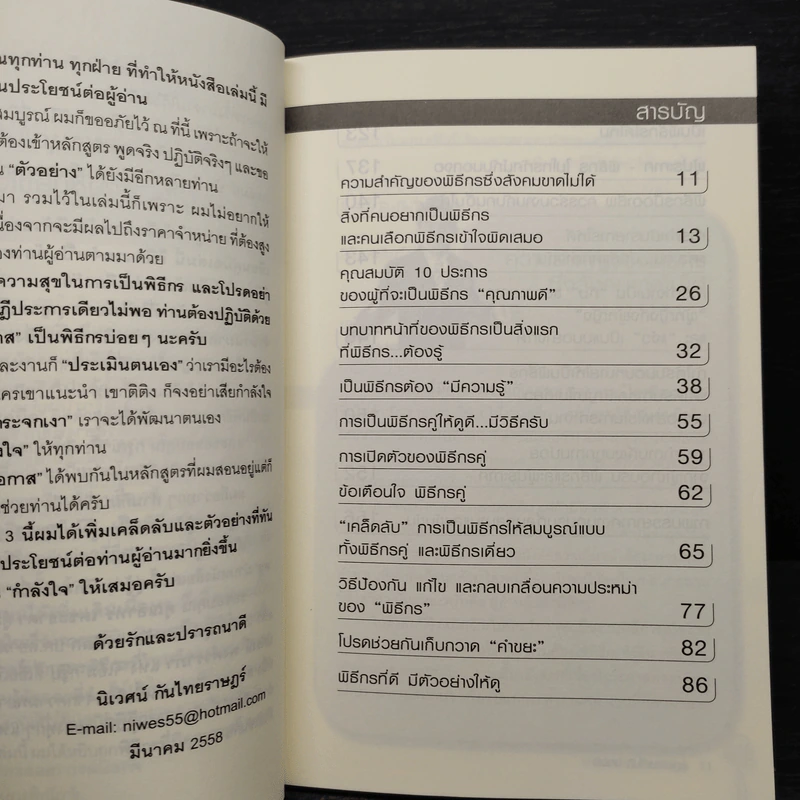 นทุกท่าน ทุกฝ่าย ที่ทำให้หนังสือเล่มนี้ มี
นประโยชน์ต่อผู้อ่าน
สมบูรณ์ ผมก็ขออภัยไว้ ณ ที่นี้ เพราะถ้าจะให้
ต้องเข้าหลักสูตร พูดจริง ปฏิบัติจริงๆ และขอ
น "ตัวอย่าง" ได้ยังมีอีกหลายท่าน
มา รวมไว้ในเล่มนี้ก็เพราะ ผมไม่อยากให้
นื่องจากจะมีผลไปถึงราคาจำหน่าย ที่ต้องสูง
องท่านผู้อ่านตามมาด้วย
ความสุขในการเป็นพิธีกร และโปรดอย่า
ฎีประการเดียวไม่พอ ท่านต้องปฏิบัติด้วย
าส" เป็นพิธีกรบ่อยๆ นะครับ
ละงานก็ "ประเมินตนเอง" ว่าเรามีอะไรต้อง
ครเขาแนะนำ เขาติติง ก็จงอย่าเสียกำลังใจ
ระจกเงา" เราจะได้พัฒนาตนเอง
งใจ" ให้ทุกท่าน
อกาส" ได้พบกันในหลักสูตรที่ผมสอนอยู่แต่ก็
ช่วยท่านได้ครับ
3 นี้ผมได้เพิ่มเคล็ดลับและตัวอย่างที่ทัน
ประโยชน์ต่อท่านผู้อ่านมากยิ่งขึ้น
"กำลังใจ" ให้เสมอครับ
ด้วยรักและปรารถนาดี
นิเวศน์ กันไทยราษฎร์
E-mail: niwes55@hotmail.com
มีนาคม 2558
สารบัญ
ความสำคัญของพิธีกรซึ่งสังคมขาดไม่ได้ 11
สิ่งที่คนอยากเป็นพิธีกร
และคนเลือกพิธีกรเข้าใจผิดเสมอ 13
คุณสมบัติ 10 ประการ
ของผู้ที่จะเป็นพิธีกร "คุณภาพดี" 26
บทบาทหน้าที่ของพิธีกรเป็นสิ่งแรก
ที่พิธีกร...ต้องรู้ 32
เป็นพิธีกรต้อง "มีความรู้" 38
การเป็นพิธีกรคู่ให้ดูดี...มีวิธีครับ 55
การเปิดตัวของพิธีกรคู่ 59
ข้อเตือนใจ พิธีกรคู่ 62
"เคล็ดลับ" การเป็นพิธีกรให้สมบูรณ์แบบ
ทั้งพิธีกรคู่ และพิธีกรเดี่ยว 65
วิธีป้องกัน แก้ไข และกลบเกลื่อนความประหม่า
ของ "พิธีกร" 77
โปรดช่วยกันเก็บกวาด "คำขยะ" 82
พิธีกรที่ดี มีตัวอย่างให้ดู 86